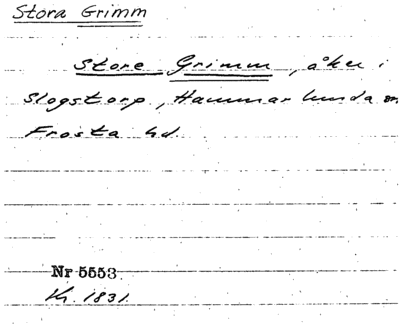 Stora Grimm
Store Grimm, åker i
Slogstorp, Hammarlunda sn
Frosta hd.
Nr 5553
Kr. 1831.